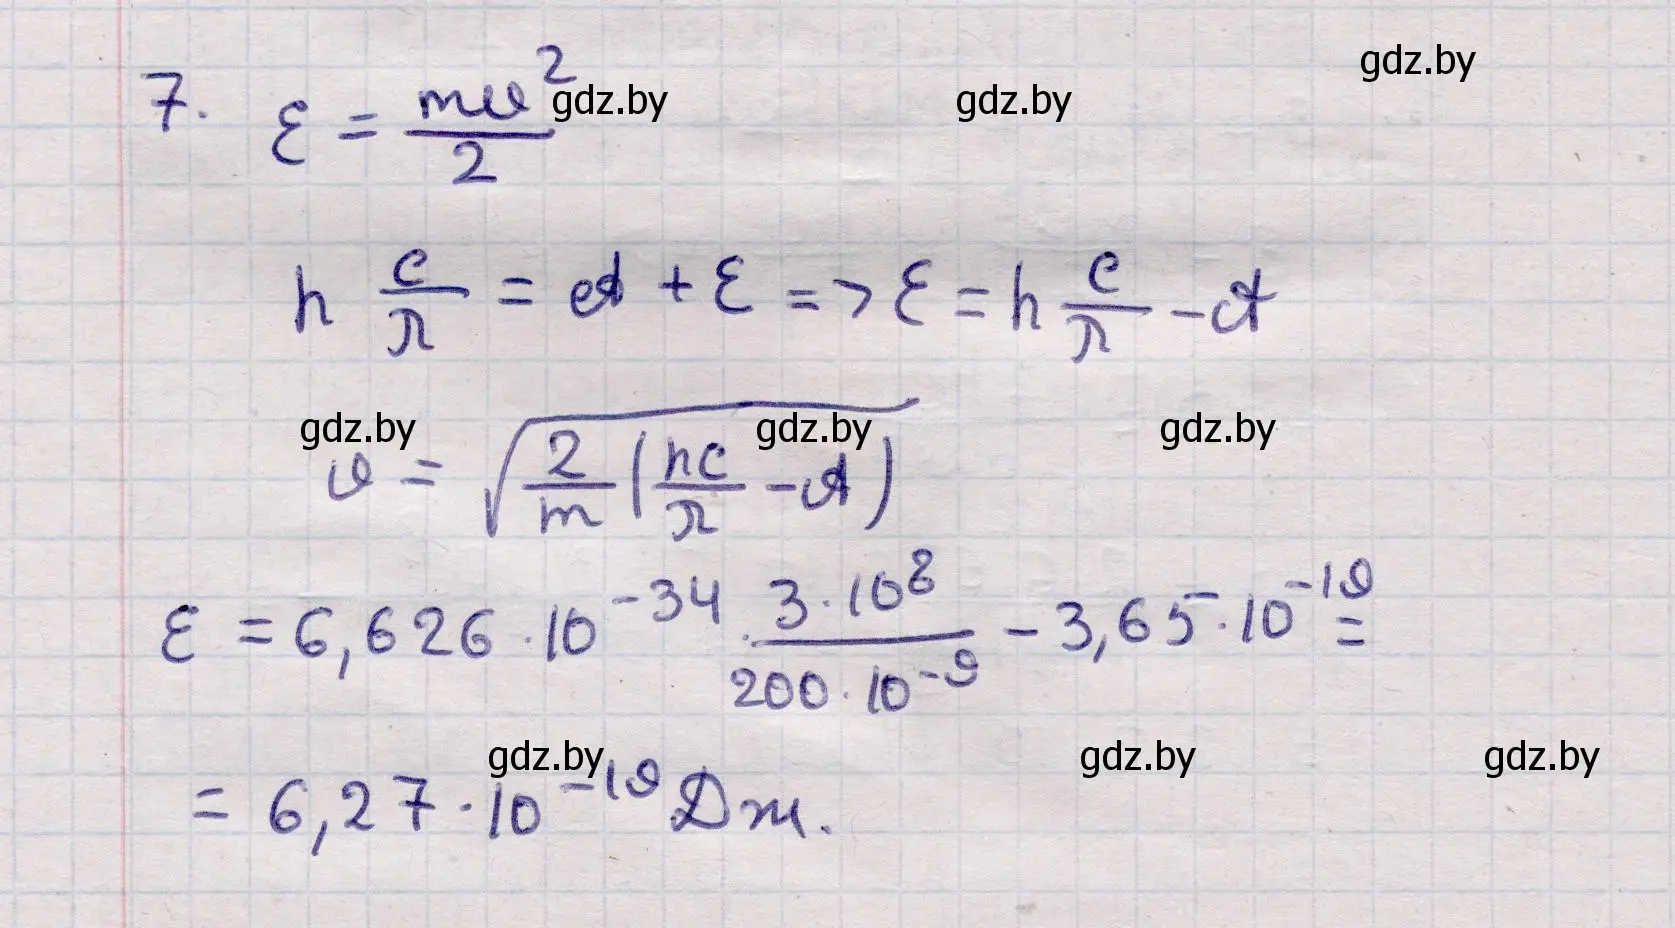 gdz.by
7. ε = mv²/2 gdz.by gdz.by
h c/λ = A + ε => ε = h c/λ - A
gdz.by gdz.by gdz.by
v = √(2/m (hc/λ - A))
ε = 6,626·10⁻³⁴ · 3·10⁸/200·10⁻⁹ - 3,65·10⁻¹⁹ =
gdz.by gdz.by gdz.by
= 6,27·10⁻¹⁹ Дж.